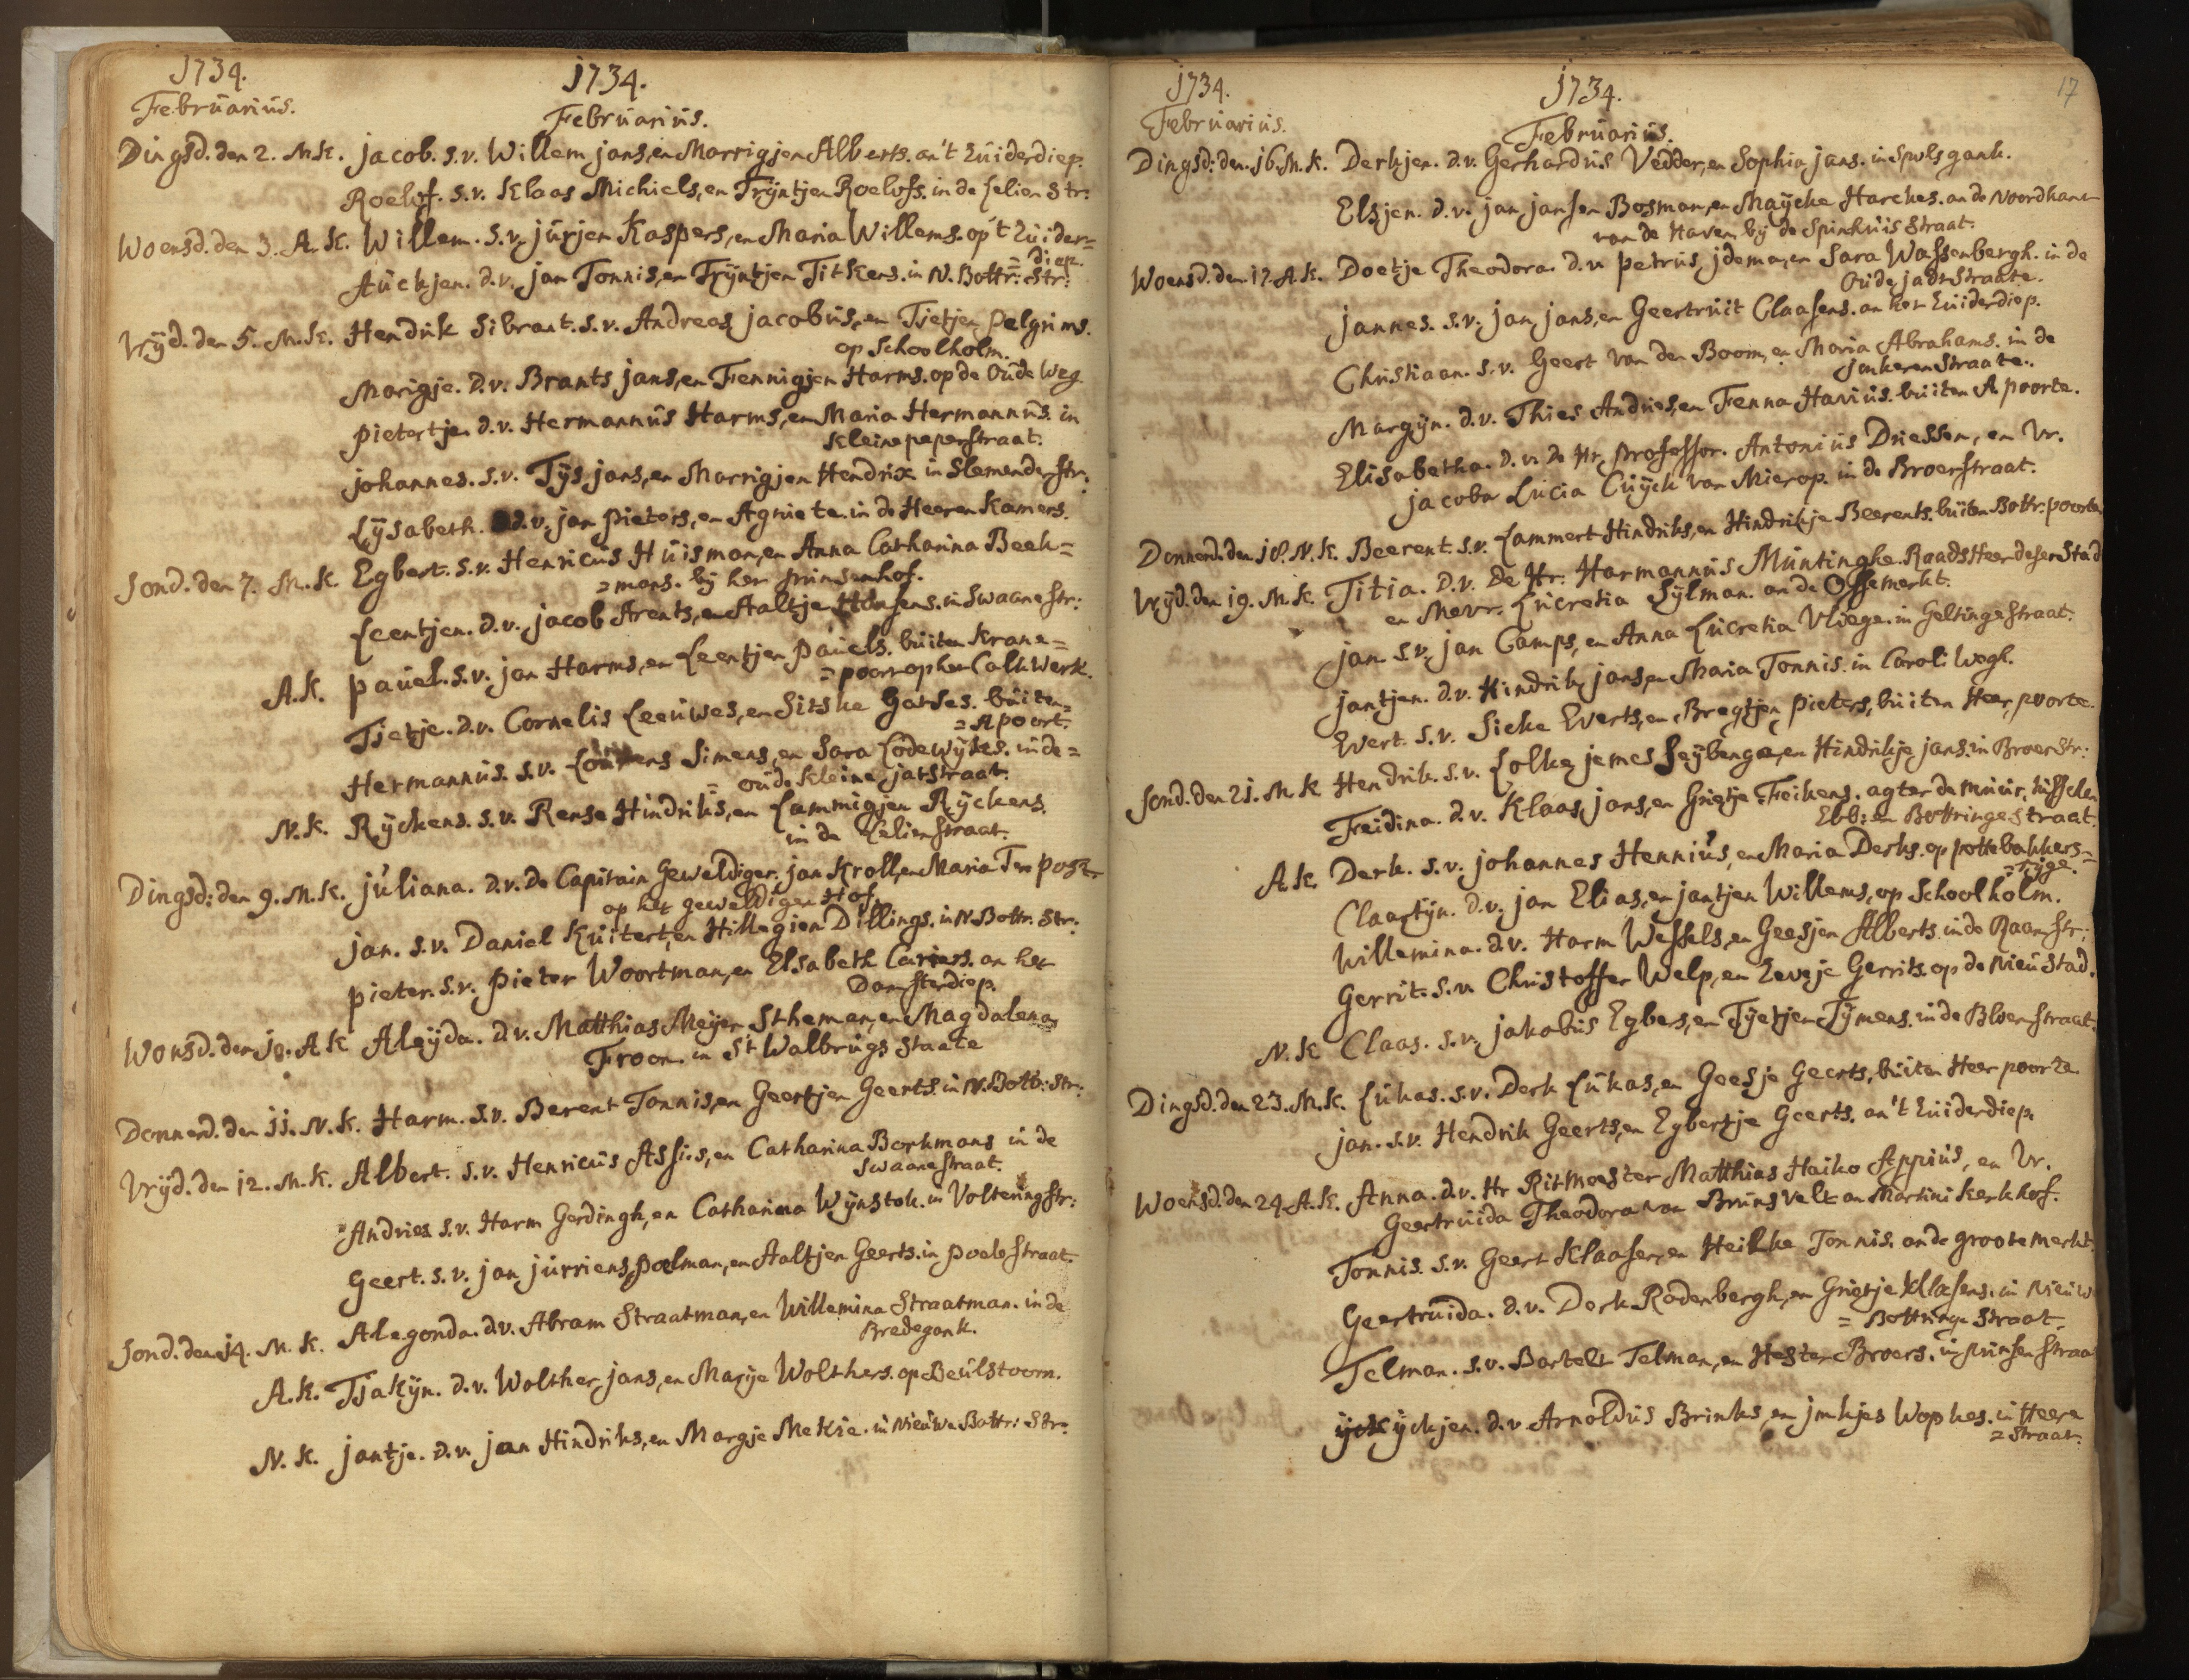 1734.
Februarius.
1734.
Februarius.
Dingsd. den 2. M.K. jacob. s.v. Willem jans, en Marrigjen Alberts. an't Zuiderdiep.
Roelof. s.v. Klaas Michiels, en Trijntjen Roelofs. in de Lelien Str:
Woensd. den 3. A.K. Willem. s.v. jurjen Kaspers, en Maria Willems. op't Zuider=
=diep.
Auckjen. d.v. jan Tonnis, en Trijntjen Titkens. in N. Bottr: Str:
Vrijd. den 5. M.K. Hendrik Sibrant. s.v. Andreas jacobus, en Tietjen Pelgrims.
op Schoolholm.
Marigje. d.v. Brants jans, en Fennigjen Harms. op de Oude Weg
Pietertjen d.v. Hermannus Harms, en Maria Hermannus. in
Kleine peperstraat.
johannes. s.v. Tijs jans, en Marrigjen Hendrix in Slemender str:
Lijsabeth. d.v. jan Pieters, en Agniete. in de Heeren Kamers.
Sond. den 7. M.K. Egbert. s.v. Henricus Huisman, en Anna Catharina Beek=
=mans. bij het prinsenhof.
Leentjen. d.v. jacob Arents, en Aaltje Hansens. in Swaane str:
A.K. Pauel. s.v. jan Harms, en Leentjen Pauels. buiten Krane=
=poort op het Calkwerk.
Tjetje. d.v. Cornelis Leeuwes, en Sitske Gatses. buiten=
=A poort.
Hermannus. s.v. Simens, en Sara Lodewijkes. in de=
= oude Kleine jatstraat.
N.K. Rijckens. s.v. Rense Hindriks, en Lammigjen Rijckens.
in de Lelienstraat.
Dingsd: den 9. M.K. juliana. d.v. De Capitain Geweldiger. jan Kroll, en Maria Ten Post
op het geweldigen Hof.
jan. s.v. Daniel Kuitert, en Hillegien Dillings. in N. Bottr. Str:
Pieter. s.v. Pieter Woortman, en Elsabeth Cariers. an het
Damsterdiep.
Wonsd. den 10. A K Aleijda. d.v. Matthias Meijer Stheman, en Magdalena
Froon. in St Walbrugs Staate
Donnerd. den 11. N.K. Harm. s.v. Berent Tonnis, en Geertjen Geerts. in N. Bottr: Str:
Vrijd. den 12. M.K. Albert. s.v. Henricus Assies, en Catharina Borkmans in de
Swaanestraat.
Andries s.v. Harm Gerdingh, en Catharina Wijnstok. in Volteringstr:
Geert. s.v. jan jurriens Poelman, en Aaltjen Geerts. in Poelestraat.
Sond. den 14. M.K. Alegonda. d.v. Abram Straatman, en Willemina Straatman. in de
Bredegank.
A.K. Tjakijn. d.v. Wolther jans, en Marije Wolthers. op Beulstoorn.
N.K. jantje. d.v. jan Hindriks, en Margje Mekie. in Nieuwe Bottr: Str:
1734.
Februarius.
1734.
Februarius.
17
Dingsd: den. 16. M.K. Derkjen. d.v. Gerhardus Vedder, en Sophia jans. in Spolsgank.
Elsjen. d.v. jan jansen Bosman, en Maijcke Harckes. an de Noordkant
van de Haven bij de Spinhuis Straat.
Woensd. den 17. A.K. Doetje Theodora. d.v. Petrus jdema, en Sara Wassenbergh. in de
Oude jadtStraate.
jannes. s.v. jan jans, en Geertruit Claasens. an het Zuiderdiep.
Christiaan. s.v. Geert van den Boom, en Maria Abrahams. in de
jonkerenStraate.
Margijn. d.v. Thies Andries, en Fenna Havius. buiten A. poorte.
Elisabetha. d.v. De Hr. Professor. Antonius Driessen, en Vr.
jacoba Lucia Cuijck van Mierop. in de Broerstraat.
Donnerd. den 18. N.K. Beerent. s.v. Lammert Hindriks, en Hindrikje Beerents. buiten Bottr: poorte
Vrijd. den 19. M.K. Titia. d.v. De Hr. Harmannus Muntinghe. RaadsHeer deser Stad
en Mevr. Lucretia Sylman. an de Ossemerkt.
jan s.v. jan Camps, en Anna Lucretia Vliege. in Geltingestraat.
jantjen. d.v. Hindrik jans, en Maria Tonnis. in Caroli Wegl.
Evert. s.v. Sicke Everts, en Bregtjen Pieters, buiten Heer poorte.
Sond. den 21. M.K Hendrik. s.v. Folke jemes Feijbenga, en Hindrikje jans. in Broer Str:
Feidina. d.v. Klaas jans, en Grietje Feikens. agter de muir, tusschen
Ebb: en BottringeStraat.
A.K. Derk. s.v. johannes Hennius, en Maria Derks. op pottebakkers=
=rijge.
Claartijn. d.v. jan Elias, en jantjen Willems, op Schoolholm.
Willemina. d.v. Harm Wessels, en Geesjen Alberts. in de Raamstr:
Gerrit. s.v. Christoffer Welp, en Eevje Gerrits. op de Nieustad.
N.K Claas. s.v. jakobus Egbes, en Tijetjen Tijmens. in de Bloemstraat.
Dingsd. den 23. M.K. Lukas. s.v. Derk Lukas, en Geesje Geerts, buiten Heer poorte
jan. s.v. Hendrik Geerts, en Egbertje Geerts. an't Zuiderdiep.
Woensd. den 24. A.K. Anna. d.v. Hr RitMeester Matthias Haiko Appius, en Vr.
Geertruida Theodora van Brunsvelt an Martini Kerkhof.
Tonnis. s.v. Geert Klaasen, en Heilke Tonnis. an de groote merkt.
Geertruida. d.v. Derk Rodenbergh, en Grietje Klasens. in Nieuw
= Bottringe Straat.
Telman. s.v. Bartelt Telman, en Hester Broers. in prinsen straa
ijckjen. d.v. Arnoldus Brinks, en jmkjes Wopkes. in Heere
=Straat.